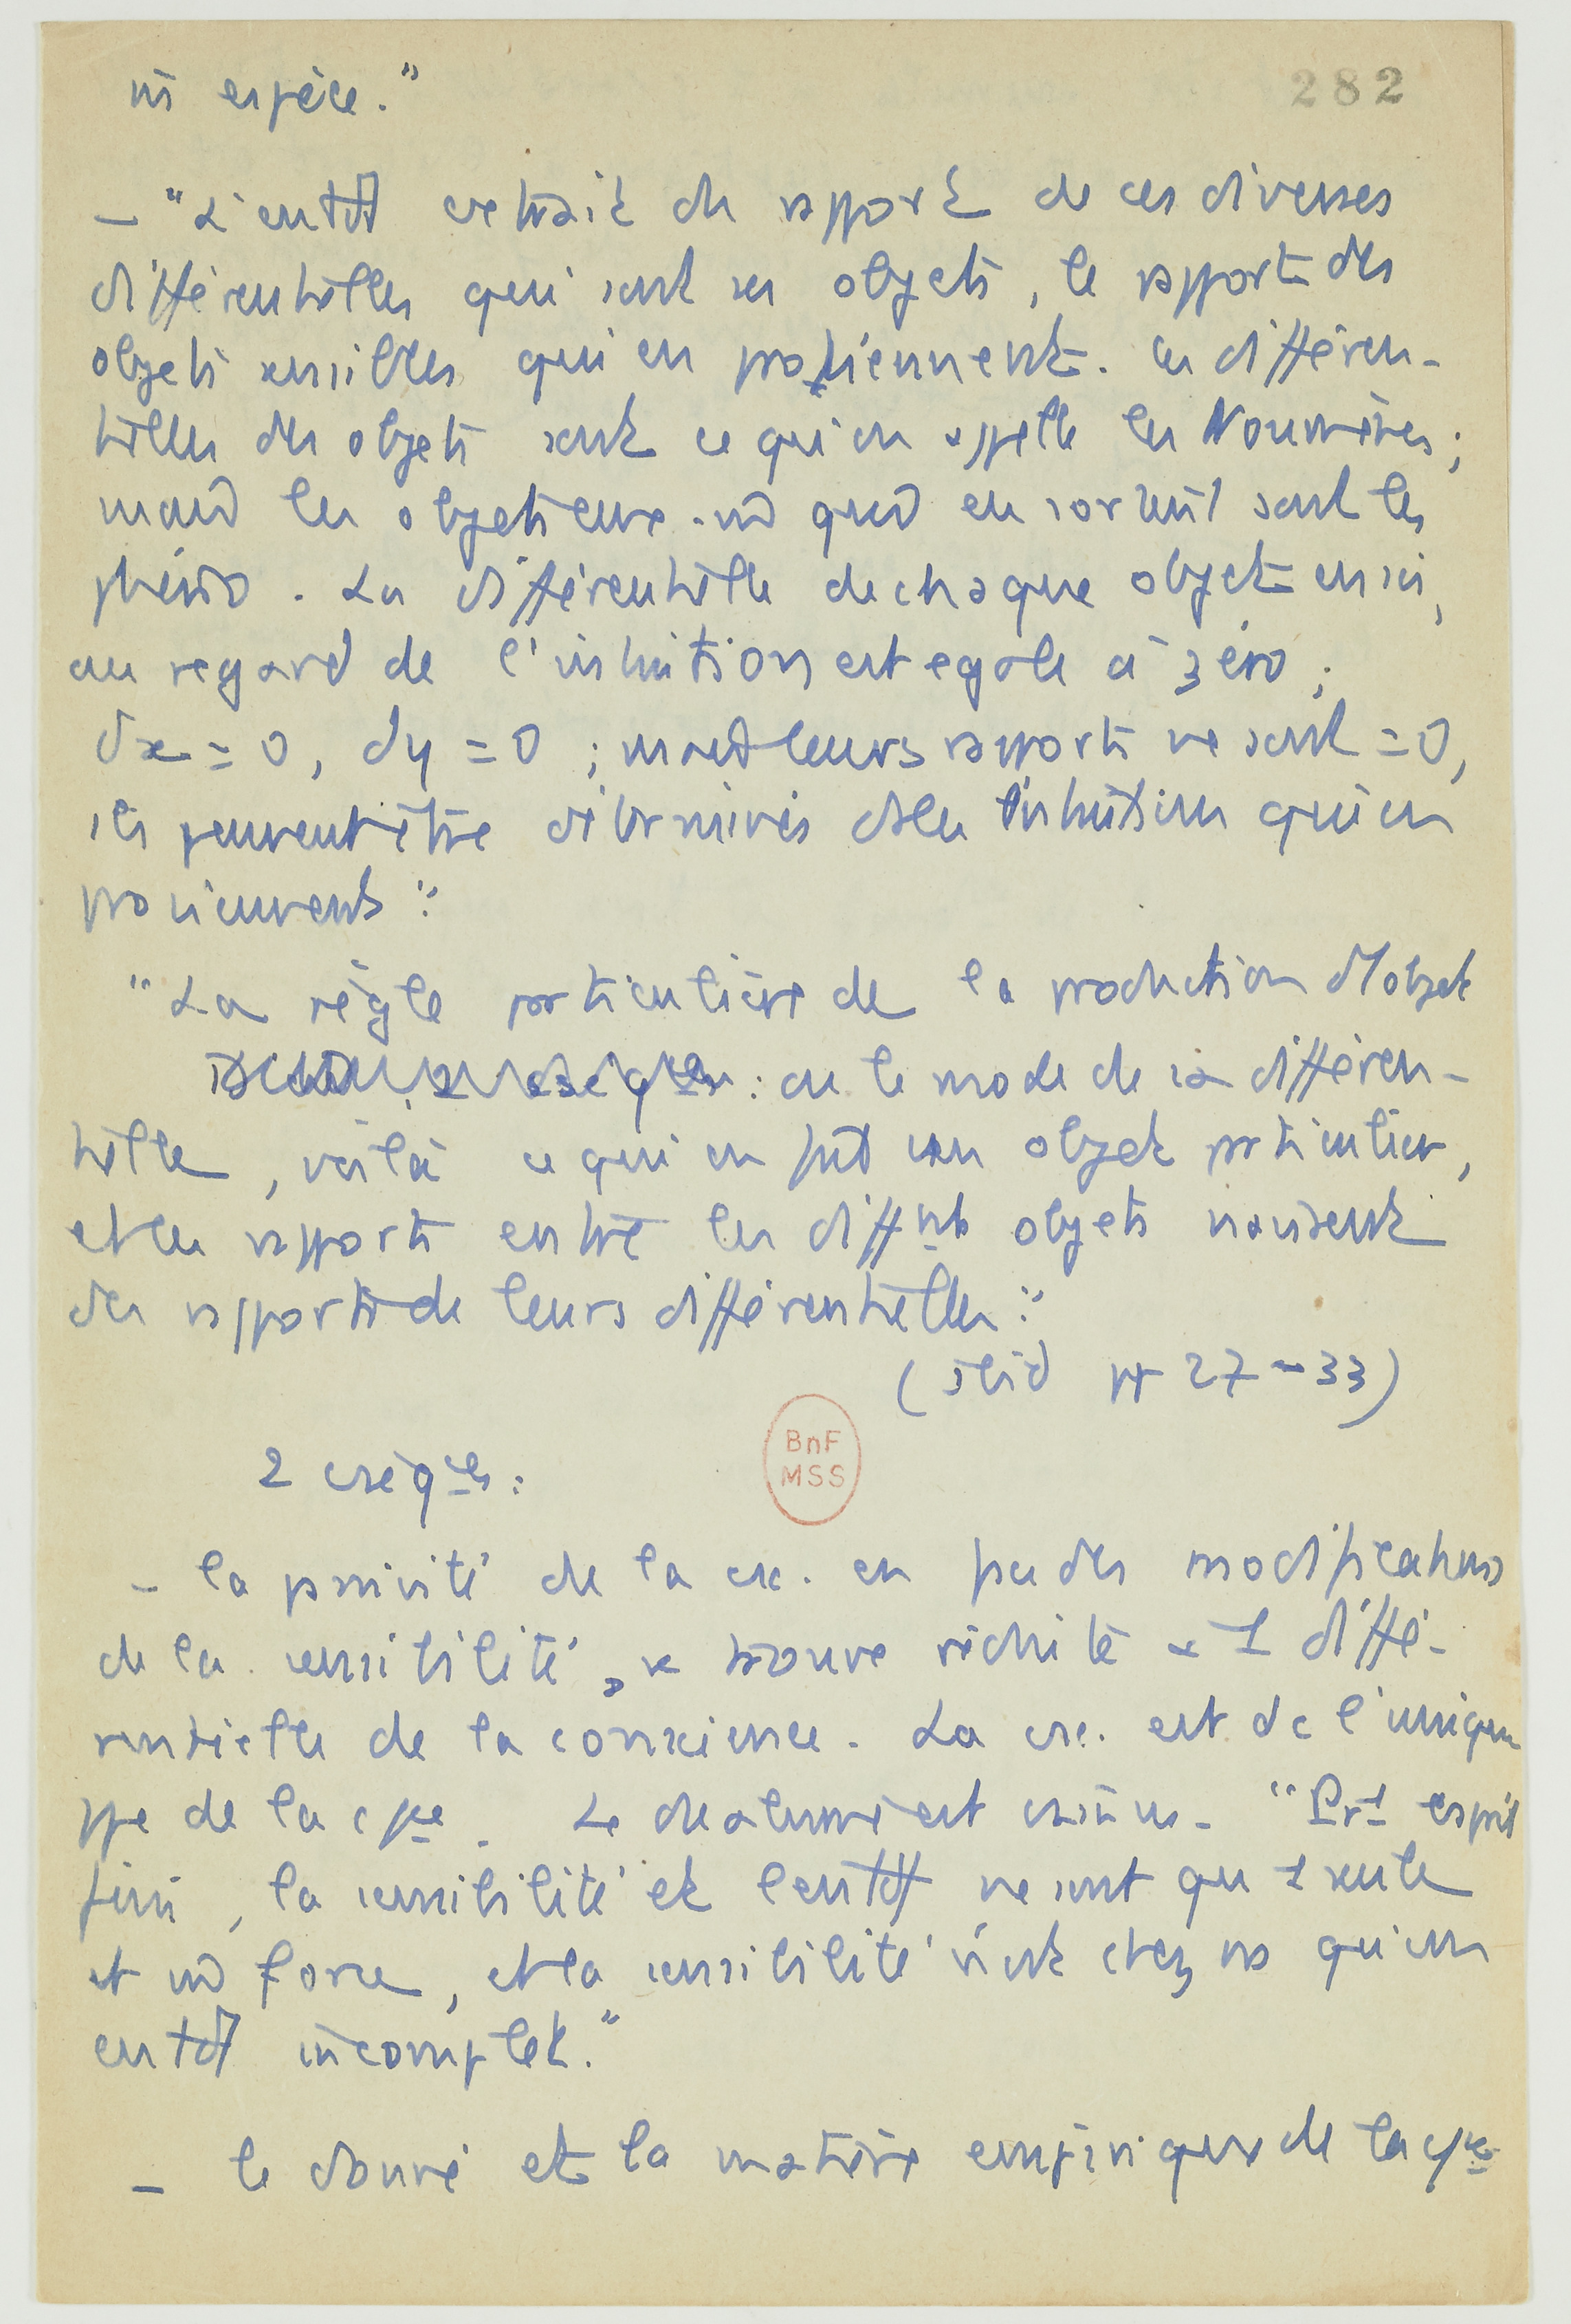 ni espèce."
282
- "L'entdt extrait du rapport de ces diverses
différentielles qui sont ses objets, le rapport des
objets sensibles qui en proviennent. Ces différen-
tielles des objets sont ce qu'on appelle les Noumènes ;
les objets eux-m̂ qui en sont les
phéno. La différentielle de chaque objet en soi,
au regard de l'intuition est egale à zéro ;
dx = 0, dy = 0 ; leurs rapports ne sont = 0,
ils peuvent être déterminés ds les intuitions qui en
proviennent".
"La règle particulière de la production d'1 objet
: ou le mode de sa différen-
tielle, voilà ce qui en fait un objet particulier,
et les rapports entre les diffnts objets naissent
des rapports de leurs différentielles".
(ibid pp 27-33)
2 cséqces :
- la passivité de la csc. en face des modifications
de la sensibilité, se trouve réduite à 1 diffé-
rentielle de la conscience. La csc. est dc l'unique
ppe de la cσce. Le dualisme est vaincu. "Pr 1 esprit
fini, la sensibilité et l'entdt ne sont qu'1 seule
et m̂ force, et la sensibilité n'est chez ns qu'un
entdt incomplet."
- le donné et la matière empirique de la cσce